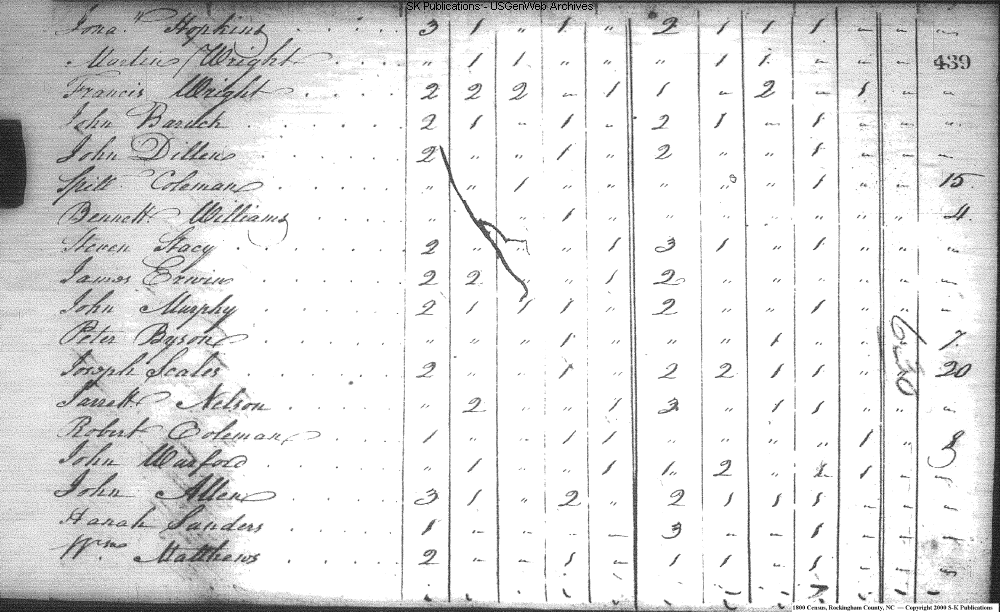 SK Publications - USGenWeb Archives
Jona. Hopkins 3 1 " 1 " 2 1 1 1 - - -
Martin Wright " 1 1 " " " 1 1 " - -
439
Francis Wright 2 2 2 - 1 1 - 2 - 1 - -
John Barick 2 1 - 1 - 2 1 - 1 - - -
John Dillen 2 " " 1 " 2 " " 1 - - -
Spill Coleman " " 1 " " " " 1 " - 15
Bennett Williams " " 1 " " " " " " " 4
Steven Stacy 2 " " 1 3 1 " 1 " " "
James Erwin 2 2 " 1 2 " " " " " -
John Murphy 2 1 1 1 " 2 " " 1 " " -
Peter Byson " " " 1 " " " 1 " " 7
Joseph Scales 2 " " 1 " 2 2 1 1 " 20
630
Jarrett Nelson " 2 " " 1 3 " 1 1 " " -
Robert Coleman 1 " " 1 1 " " " " 1 " 8
John Warford " 1 " " 1 1 2 " 1 1 -
John Allen 3 1 " 2 " 2 1 1 1 - - -
Hanah Sanders 1 - - - - 3 - - 1 - - -
Wm Matthews 2 - - 1 - 1 1 - 1 - -
1800 Census, Rockingham County, NC — Copyright 2000 S-K Publications